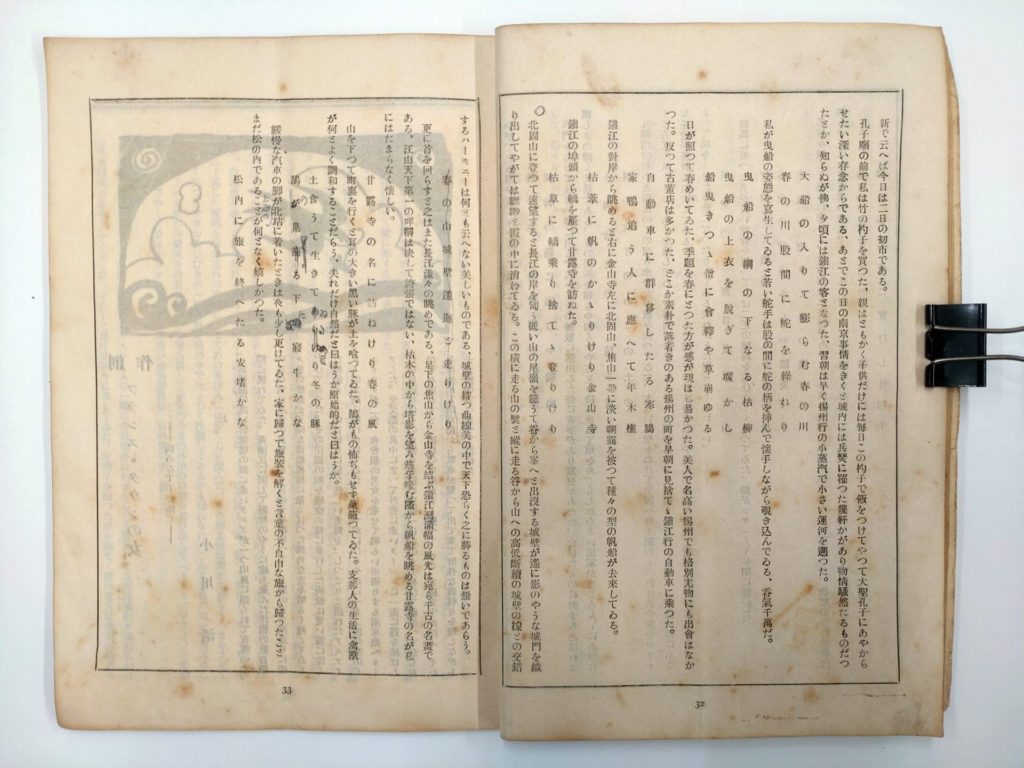 新で云へば今日は二日の初市である。
孔子廟の前で私は竹の杓子を買つた、親はともかく子供だけには毎日この杓子で飯をつけてやつて大聖孔子にあやから
せたい深い存念からである、あとでこの日の南京事情をきくと城内には兵燹に罹つた幾軒かがあり物情騒然たるものだつ
たとか、知らぬが佛、夕頃には鎭江の客となつた、翌朝は早く揚州行の小蒸汽で小さい運河を遡つた。
大船の入りて膨らむ春の川
春の川股間に舵を
私が曳船の姿態を寫生してゐると若い舵手は股の間に舵の柄を挿んで懐手しながら覗き込んでゐる、呑氣千萬だ。
曳船の綱の下なる枯柳
曳船の上衣を脱ぎて暖かし
船曳きつゝ僧に會釋や草萌ゆる
日が照つて暖めいてゐた、季題を春にとつた方が感が現はし易かつた。美人で名高い揚州でも格別尤物にも出會はなか
つた。反つて古董店は多かつた、どこか素朴で落着きのある揚州の町を早朝に見捨てゝ鎭江行の自動車に乘つた。
自動車に群移したる寒鴉
家鴨追う人に應へて年木樵
鎭江の對岸から眺めると右に金山寺左に北固山、焦山一帶に淡い朝靄を被つて種々の型の帆船が去來してゐる。
枯葦に帆のかゝりけり金山寺
鎭江の埠頭から轎を雇つて甘露寺を訪ねた。
枯草に轎乘り捨てゝ登りけり
北固山に登つて遠望すると長江の岸を匐う低い山の尾嶺を縫うて谷から峯へと出沒する城壁が遙に影のやうな城門を織
り出してやがては　　と霞の中に消えてゐる。この横に走る山の襞と縱に走る谷から山への高低斷續の城壁の線との交錯
32
するハーモニーは何とも云へない美しいものである、城壁の持つ曲線美の中で天下恐らく之に勝るものは無いであらう。
春の山城壁遙迤と走りけり
更に首を回らすと之はまた長江滾々の眺めである、足下の焦山から金山寺を結ぶ鎭江　幅の風光は宛ら千古の名畫で
ある、江山天下第一の稱は決して誇張ではない、枯木の中から塔影を望み　字　む　から帆船を眺める甘露寺の名が私
にはたまらなく懷しい。
甘露寺の名に訪ねけり春の風
山を下つて町裏を行くと耳の大きい黑い豚が土を喰つてゐた、鵲がもの怖ぢもせず巢籠つてゐた。支那人の生活に禽獸
が何とよく調和することだらう、夫れだけ自然だと曰はうか原始的だと曰はうか。
土食うて生きてありけり冬の豚
鵲が巢籠る下の寢牛かな
緩慢な汽車の脚が北站に着いたときは夜も少し更けてゐた、家に歸つて旅裝を解くと言葉の不自由な旅から歸つたこと
まだ松の内であることが何となく嬉しかつた。
松內に旅を終へたる安堵かな
33